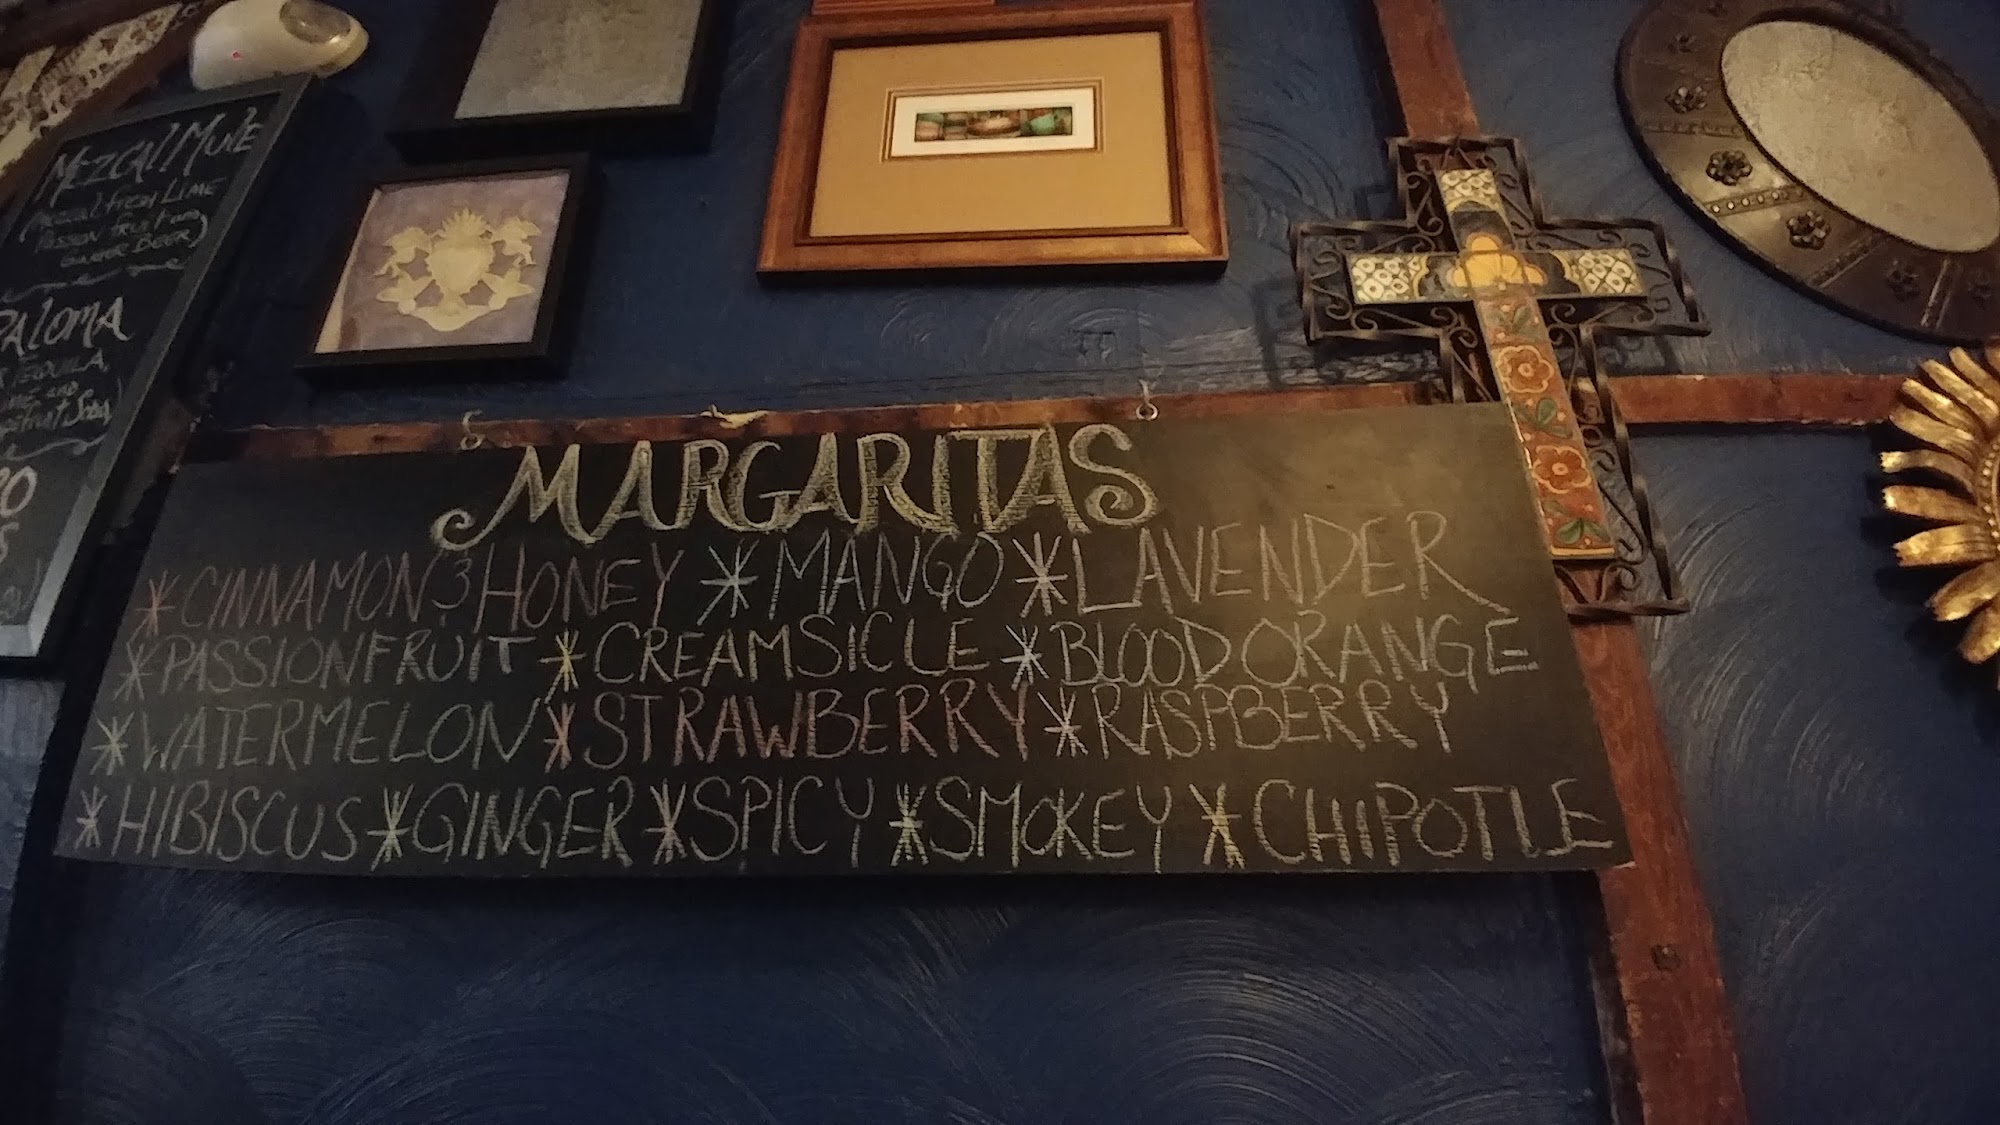 MEZCAL MULE
(MEZCAL FRESH LIME
PASSION FRUIT AND
GINGER BEER)
PALOMA
TEQUILA,
AND
MARGARITAS
*CINNAMON & HONEY *MANGO *LAVENDER
*PASSIONFRUIT *CREAMSICLE *BLOOD ORANGE
*WATERMELON *STRAWBERRY *RASPBERRY
*HIBISCUS *GINGER *SPICY *SMOKEY *CHIPOTLE